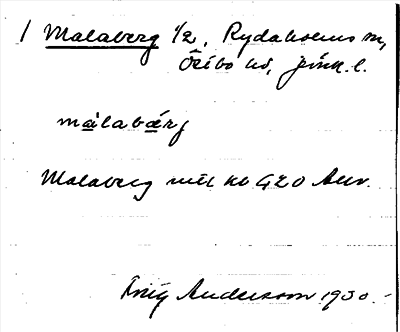 / Malaberg 1/2, Rydaholms sn,
Östbo hd, Jönk. l.
målabärj
Malaberg mtl kb GEO Anv.
Stig Andersson 1930.